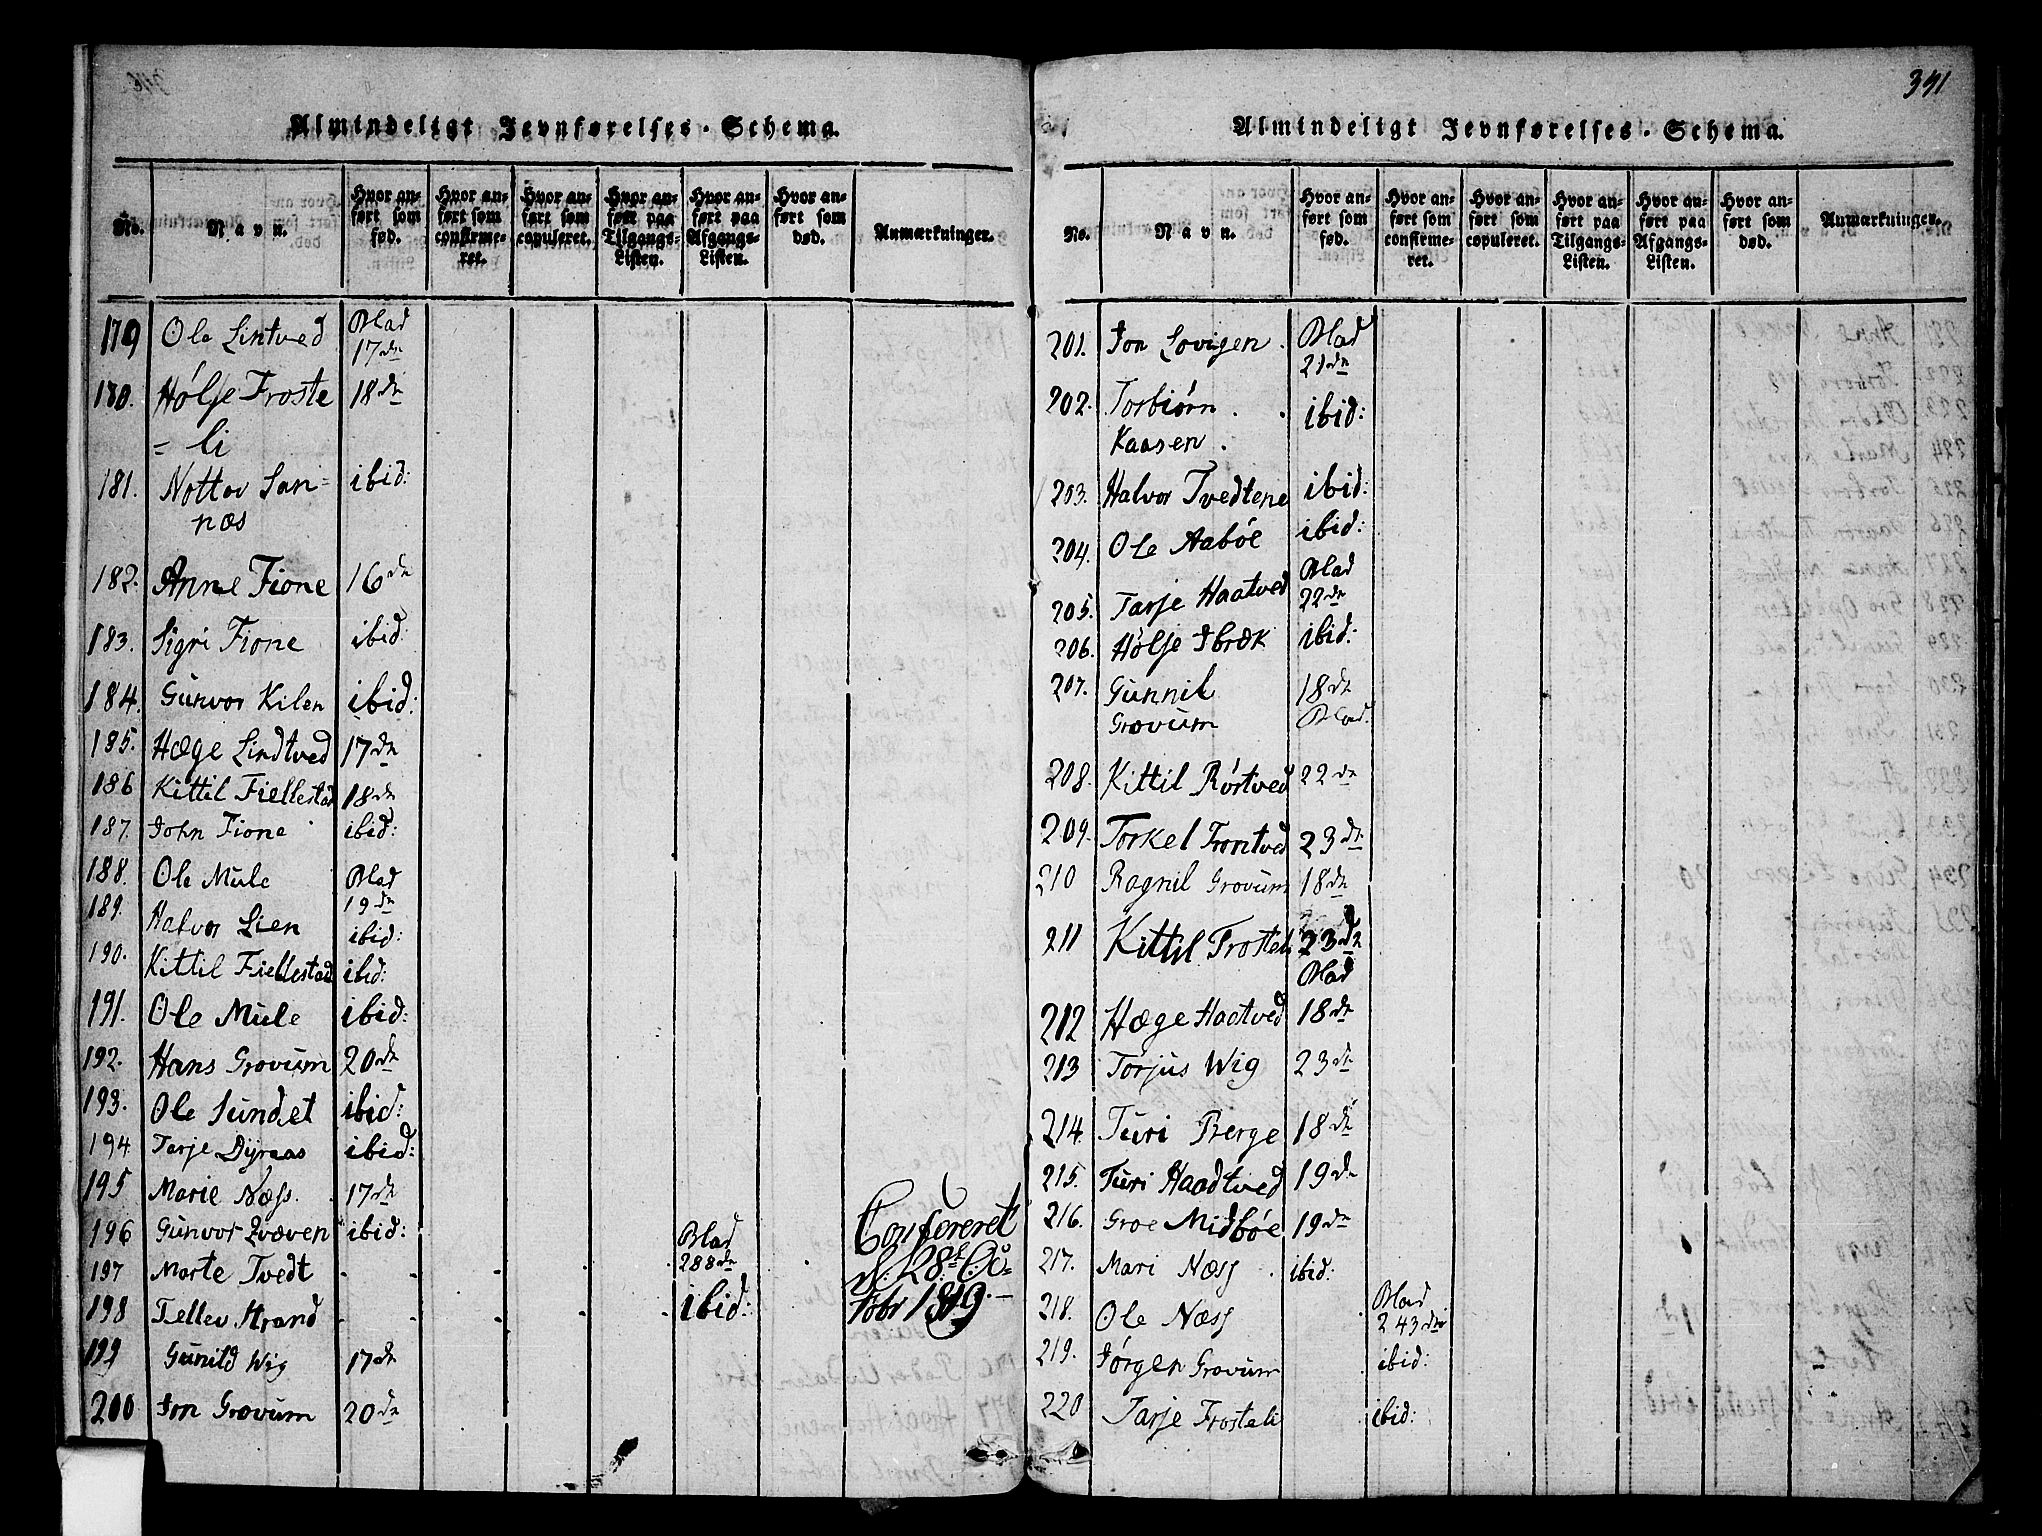 Almindeligt Jevnførelses-Schema.
No. Navn. Hvor anført som fød. Hvor anført som confirmeret. Hvor anført som copuleret. Hvor anført paa Tilgangs-Listen. Hvor anført paa Afgangs-Listen. Hvor anført som død. Anmærkninger.
179 Ole Lintved Blad 17de
180. Hølje Froste
= li 18de
181. Nottov San=
næs ibid:
182. Anne Fione 16de
183. Sigri Fione ibid:
184. Gunvor Kilen ibid:
185. Hæge Lindtved 17de
186 Kittil Fiellestad 18de
187. John Fione ibid:
188. Ole Mule Blad 19de
189. Halvor Lien ibid:
190. Kittil Fiellestad ibid:
191. Ole Mule ibid:
192. Hans Grovum 20de
193. Ole Sundet ibid:
194 Tarje Dyraas ibid:
195 Marie Næss. 17de
196 Gunvor Qvæven ibid:
197 Marte Tvedt Blad 288de
198 Tellev Strand ibid:
Confereret
d: 28t Oc=
tobr 1819.
199 Gunild Wig 17de
200 Jon Grovum 20de
341
Almindeligt Jevnførelses-Schema.
No. Navn. Hvor anført som fød. Hvor anført som confirmeret. Hvor anført som copuleret. Hvor anført paa Tilgangs-Listen. Hvor anført paa Afgangs-Listen. Hvor anført som død. Anmærkninger.
201. Jon Lovigen. Blad 21de
202. Torbiørn
Kaasen. ibid:
203. Halvor Tvedtene ibid:
204. Ole Aabøe ibid:
205. Tarje Haatved Blad 22de
206. Hølje Ibræk ibid:
207. Gunnil
Grovum 18de Blad.
208. Kittil Rørtved 22de
209. Torkel Trontved 23de
210 Ragnil Grovum 18de
211 Kittil Frosteli 23de Blad
212 Hæge Haatved 18de
213 Torjus Wig 23de
214. Turi Berge 18de
215. Turi Haadtved 19de
216. Groe Midbøe 19de
217. Mari Næss ibid:
218. Ole Næss Blad 243de
219. Jørgen Grovum ibid:
220 Tarje Frosteli ibid: